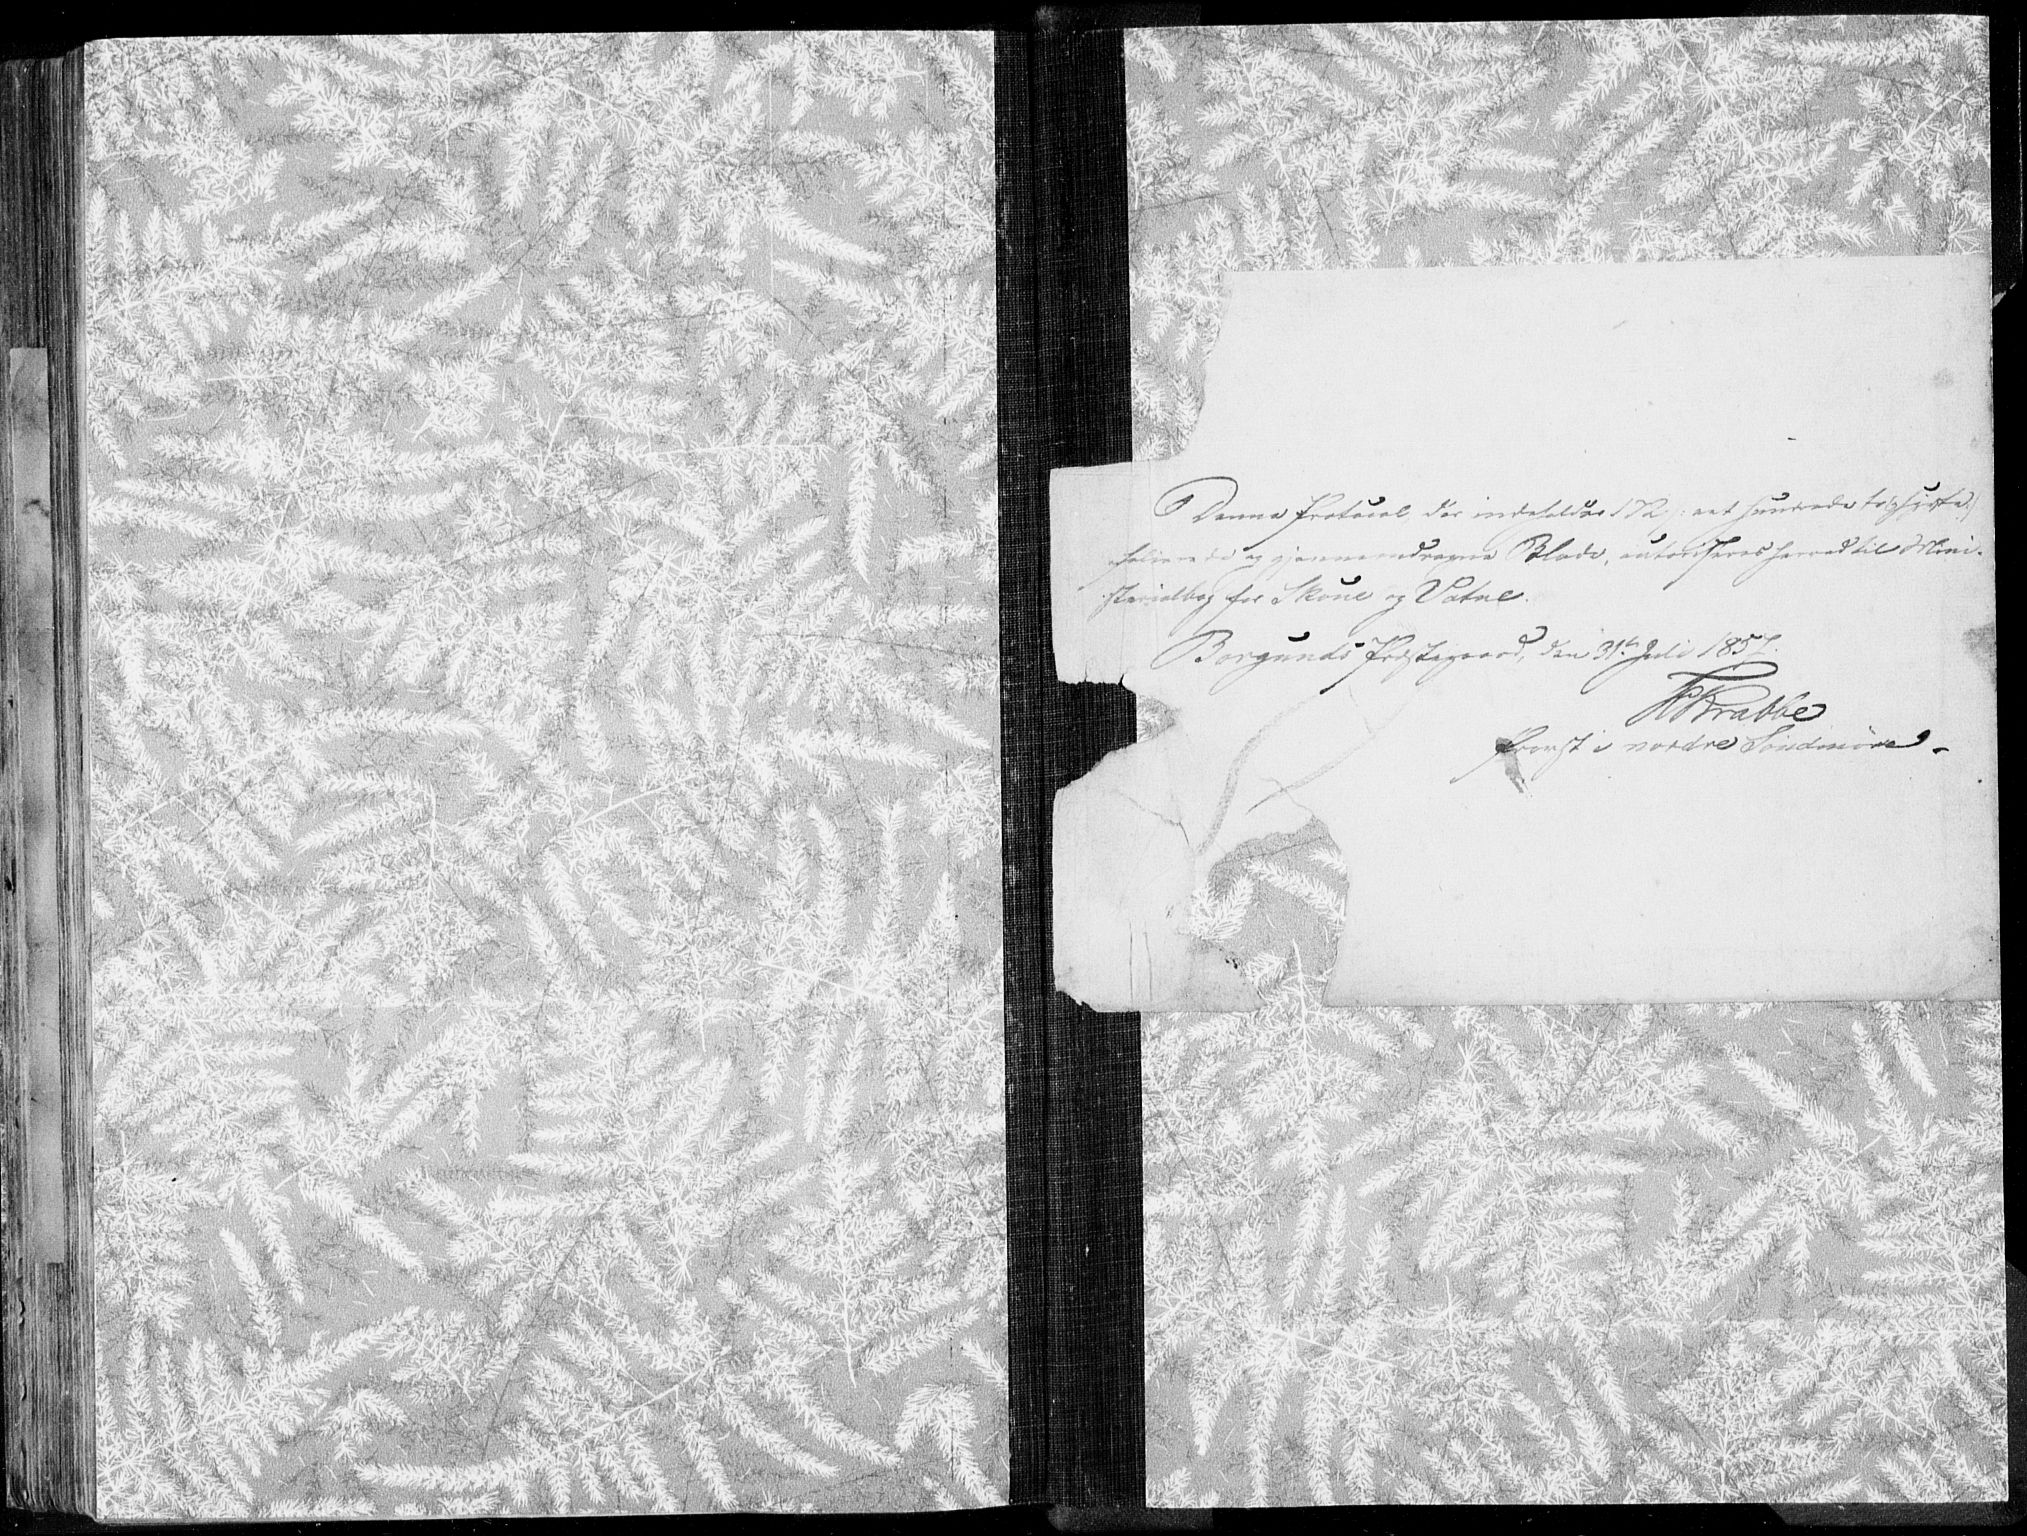 Denne Protocol, der indeholder 172 /: eet hundrede to
folierede og gjennemdragne Blade, autoriseres herved til Mini-
sterialbog for Skoue og Vatne.
Borgunds Præstegaard, den 31te Juli 1857.
Krabbe
Provst i nordre Søndmøre.